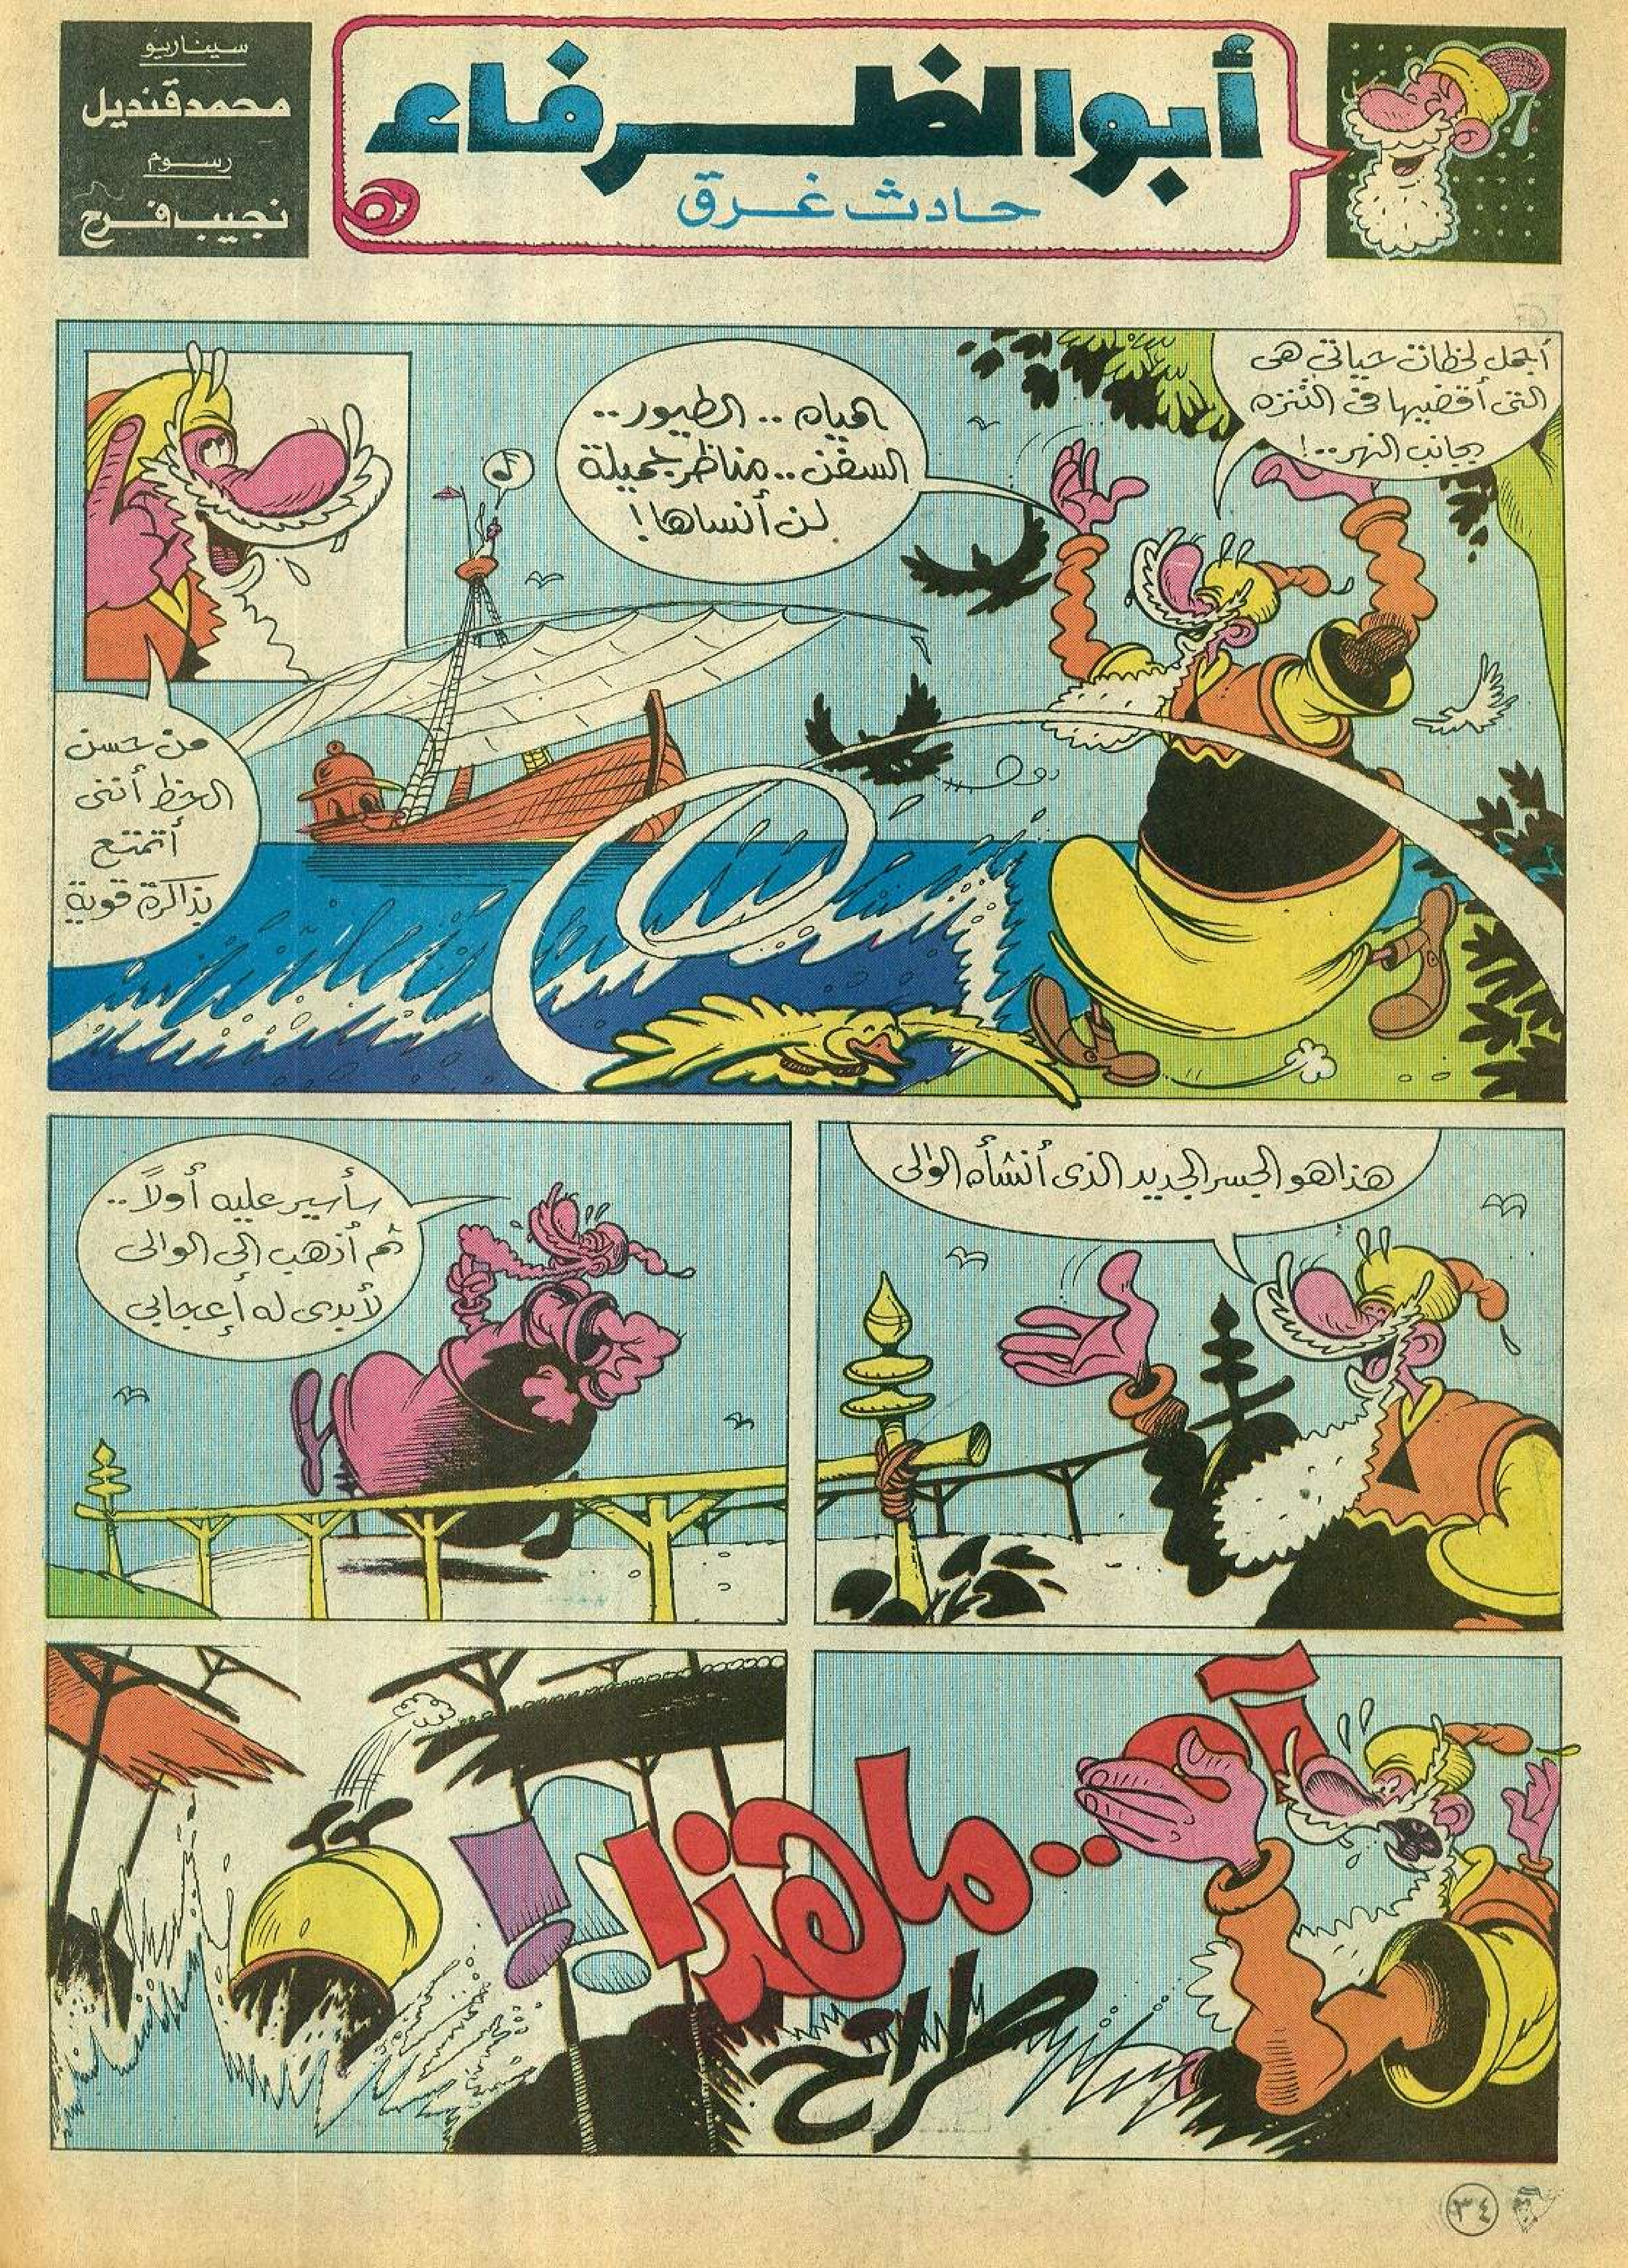 أبو الظرفاء
حادث غرق
سيناريو
محمد قنديل
رسوم
نجيب فرح
أجمل لحظات حياتى هى
التى أقضيها فى التنزه
بجانب النهر..!
المياه .. الطيور..
السفن.. مناظر جميلة
لن أنساها!
من حسن
الحظ أننى
أتمتع
بذاكرة قوية
هذا هو الجسر الجديد الذى أنشأه الوالى
سأسير عليه أولاً..
ثم أذهب إلى الوالى
لأبدى له إعجابى
آه..ما هذا!!
طراخ
٣٤